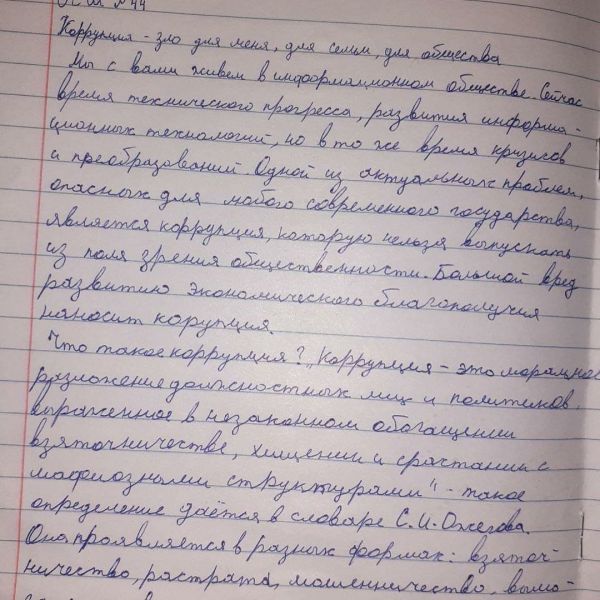 №44
Коррупция - зло для меня, для семьи, для общества
Мы с вами живем в информационном обществе. Сейчас
время технического прогресса, развития информа-
ционных технологий, но в то же время кризисов
и преобразований. Одной из актуальных проблем,
опасных для любого современного государства,
является коррупция, которую нельзя выпускать
из поля зрения общественности. Большой вред
развитию экономического благополучия
наносит корупция.
Что такое коррупция? „Коррупция - это моральное
разложение должностных лиц и политиков,
выраженное в незаконном обогащении
взяточничестве, хищении и срастании с
мафиозными структурами" - такое
определение даётся в словаре С.И.Ожегова.
Она проявляется в разных формах: взяточ-
ничество, растрата, мошенничество, вымо-